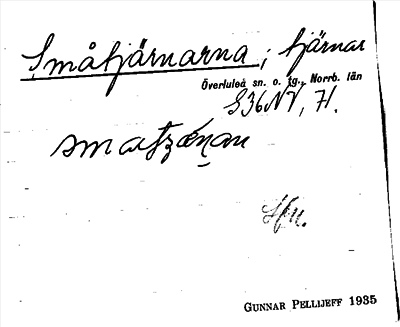 Småtjärnarna; tjärnar
Överluleå sn. o. tg., Norrb. län
S36NV, 71.
smatzænan
GUNNAR PELLIJEFF 1935